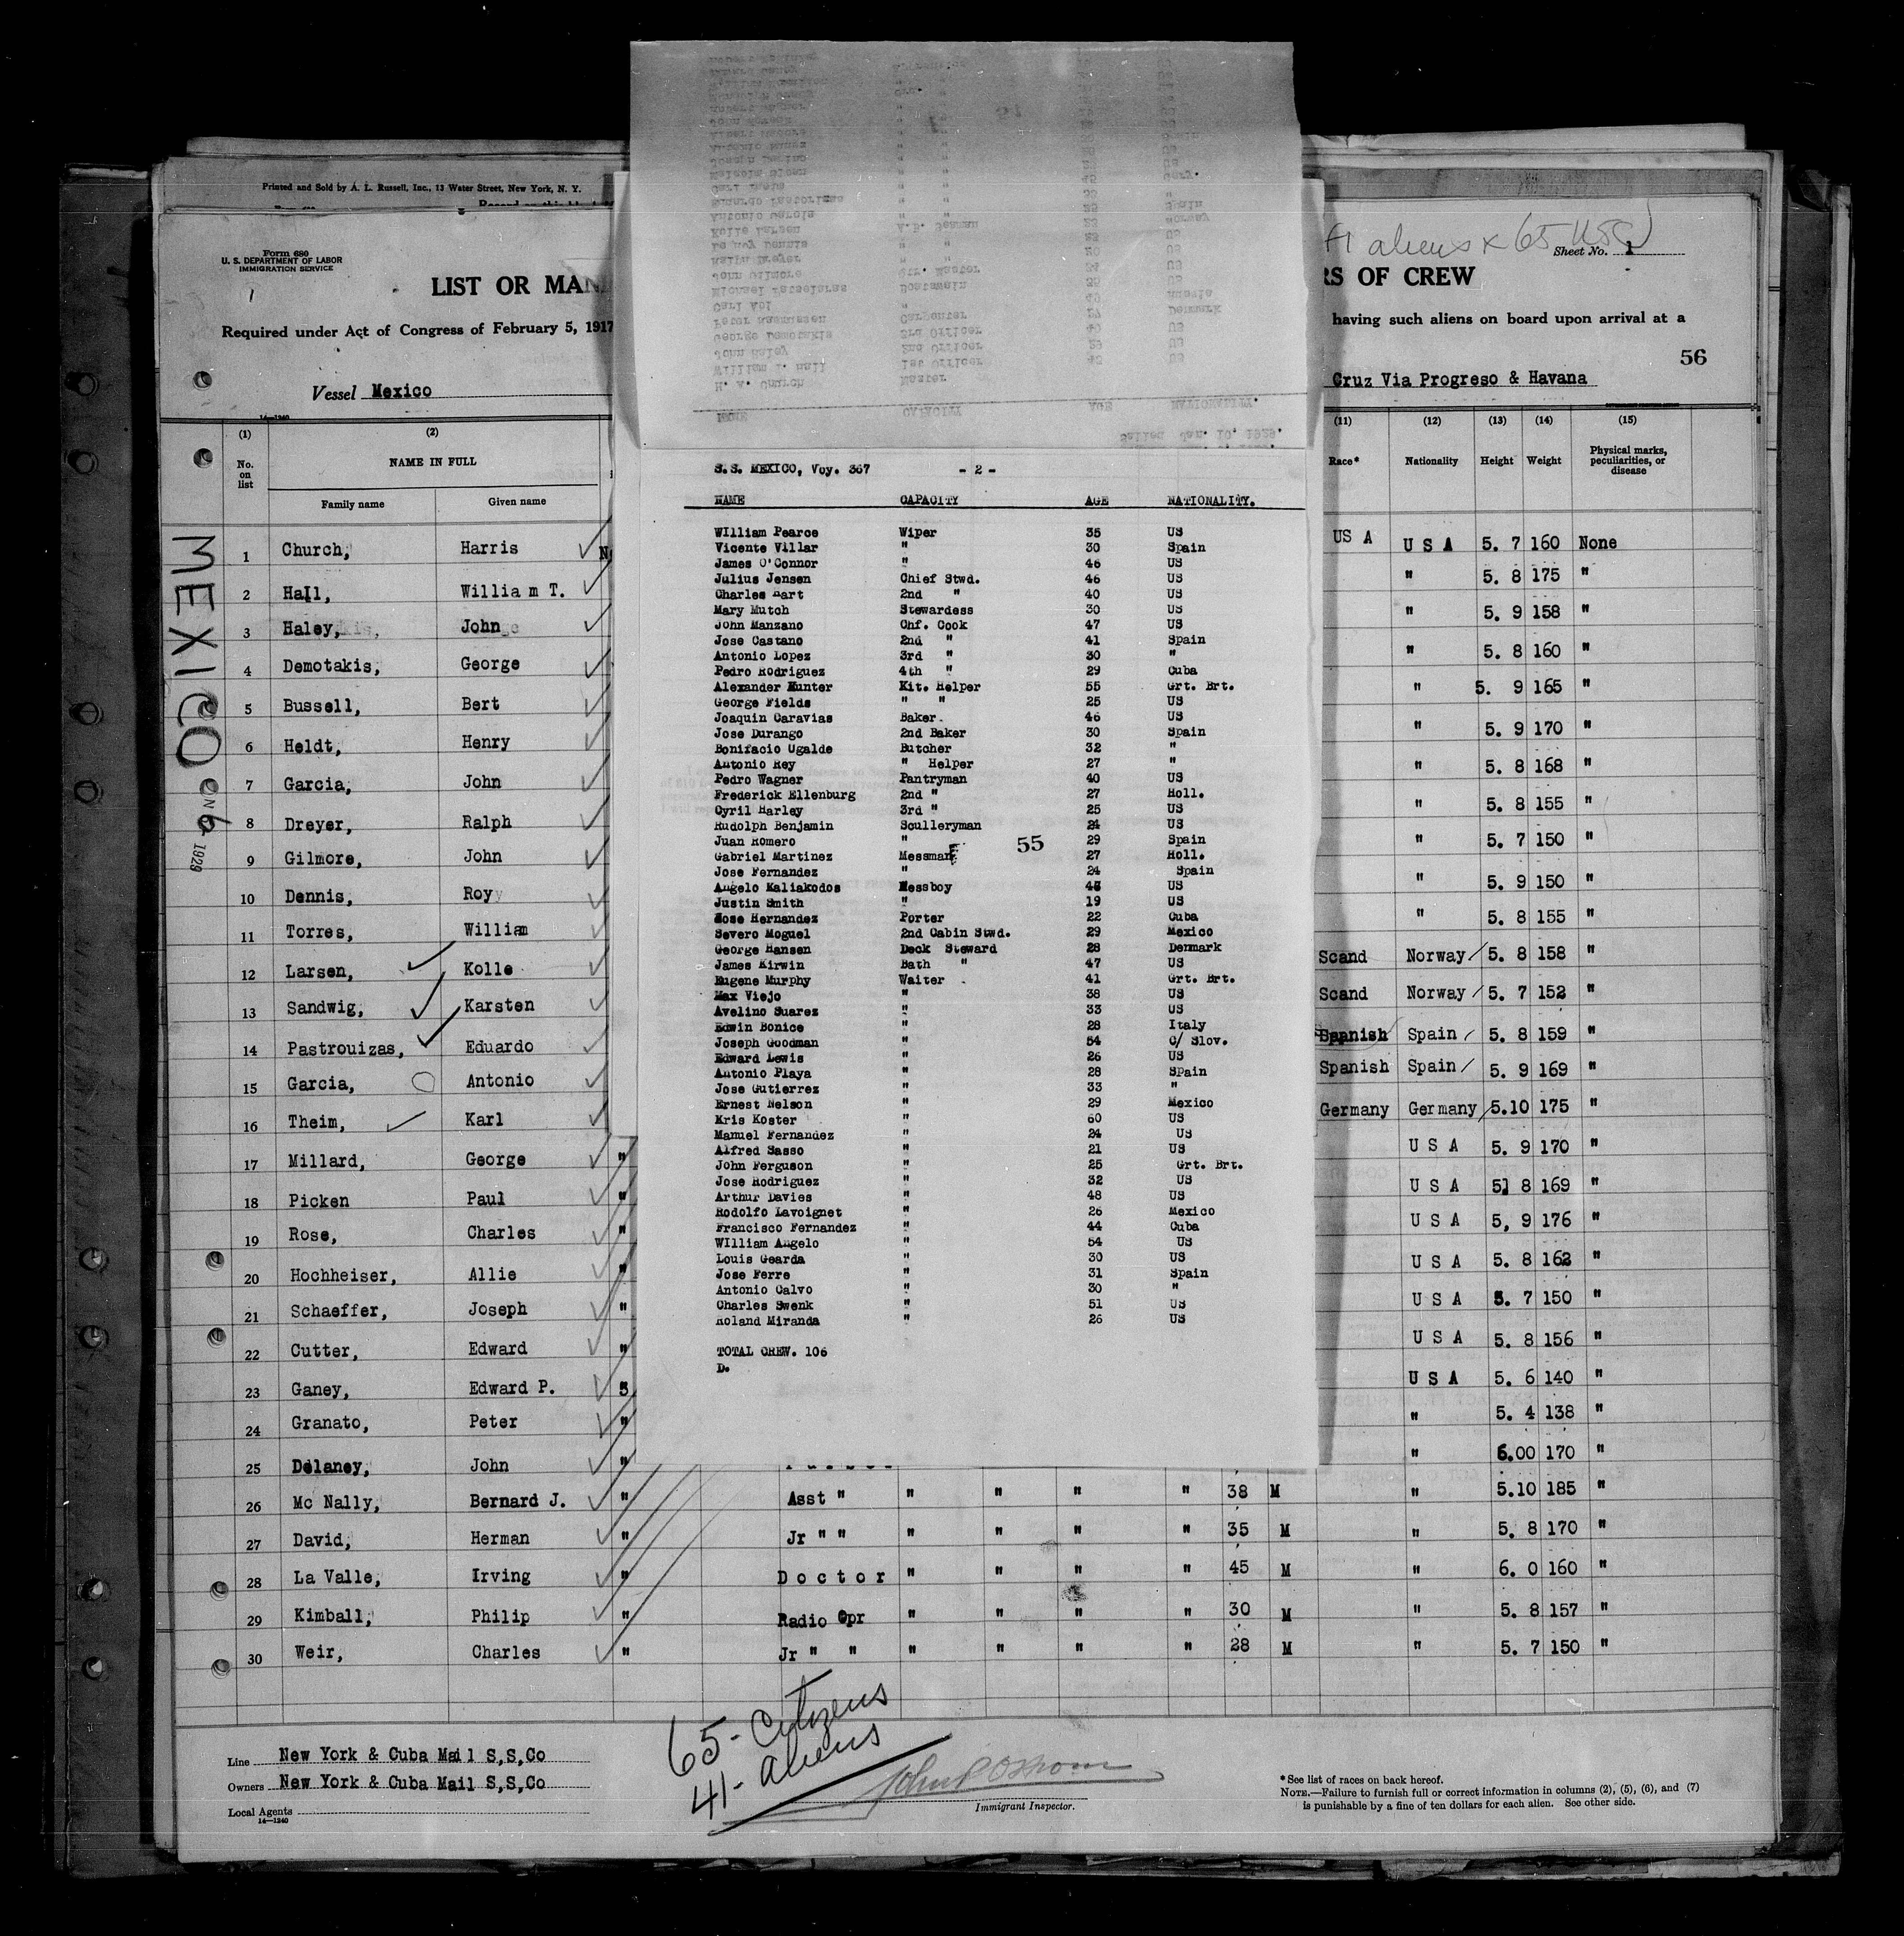 Printed and Sold by A. L. Russell, Inc., 13 Water Street, New York, N. Y.
Form 680
U. S. DEPARTMENT OF LABOR
IMMIGRATION SERVICE
aliens 65 USC
Sheet No. 1
LIST OR MAN
RS OF CREW
Required under Act of Congress of February 5, 1917
having such aliens on board upon arrival at a
56
Vessel Mexico
Cruz Via Progreso & Havana
14—1240
Sailed Jan. 10, 1929.
NAME CAPACITY AGE NATIONALITY.
H. A. Church Master
William T. Hall 1st Officer 43 US
John Haley 2nd Officer 29 US
George Demotakis 3rd Officer 40 US
Peter Rasmussen Carpenter 27 Denmark
S.S. MEXICO, Voy. 367 - 2 -
NAME CAPACITY AGE NATIONALITY.
William Pearce Wiper 35 US
Vicente Villar " 30 Spain
James O'Connor " 46 US
Julius Jensen Chief Stwd. 46 US
Charles Hart 2nd " 40 US
Mary Mutch Stewardess 30 US
John Manzano Chf. Cook 47 US
Jose Castano 2nd " 41 Spain
Antonio Lopez 3rd " 30 "
Pedro Rodriguez 4th " 29 Cuba
Alexander Hunter Kit. Helper 55 Grt. Brt.
George Fields " " 25 US
Joaquin Caravias Baker. 46 US
Jose Durango 2nd Baker 30 Spain
Bonifacio Ugalde Butcher 32 "
Antonio Rey " Helper 27 "
Pedro Wagner Pantryman 40 US
Frederick Ellenburg 2nd " 27 Holl.
Cyril Harley 3rd " 25 US
Rudolph Benjamin Sculleryman 24 US
Juan Romero " 29 Spain
55
Gabriel Martinez Messman 27 Holl.
Jose Fernandez " 24 Spain
Angelo Kaliakodos Messboy US
Justin Smith " 19 US
Jose Hernandez Porter 22 Cuba
Severo Moguel 2nd Cabin Stwd. 29 Mexico
George Hansen Deck Steward 28 Denmark
James Kirwin Bath " 47 US
Eugene Murphy Waiter 41 Grt. Brt.
Max Viejo " 38 US
Avelino Suarez " 33 US
Edwin Bonice " 28 Italy
Joseph Goodman " 54 C/ Slov.
Edward Lewis " 26 US
Antonio Playa " 28 Spain
Jose Gutierrez " 33 "
Ernest Nelson " 29 Mexico
Kris Koster " 60 US
Manuel Fernandez " 24 US
Alfred Sasso " 21 US
John Ferguson " 25 Grt. Brt.
Jose Rodriguez " 32 US
Arthur Davies " 48 US
Rodolfo Lavoignet " 26 Mexico
Francisco Fernandez " 44 Cuba
William Angelo " 54 US
Louis Gearda " 30 US
Jose Ferre " 31 Spain
Antonio Calvo " 30 "
Charles Swenk " 51 US
Roland Miranda " 26 US
TOTAL CREW. 106
D.
(1) (2) (11) (12) (13) (14) (15)
No. on list NAME IN FULL Race* Nationality Height Weight Physical marks, peculiarities, or disease
Family name Given name
MEXICO
1929
1 Church, Harris US A U S A 5. 7 160 None
2 Hall, William T. " 5. 8 175 "
3 Haley, John " 5. 9 158 "
4 Demotakis, George " 5. 8 160 "
5 Bussell, Bert " 5. 9 165 "
6 Heldt, Henry " 5. 9 170 "
7 Garcia, John " 5. 8 168 "
8 Dreyer, Ralph " 5. 8 155 "
9 Gilmore, John " 5. 7 150 "
10 Dennis, Roy " 5. 9 150 "
11 Torres, William " 5. 8 155 "
12 Larsen, Kolle Scand Norway 5. 8 158 "
13 Sandwig, Karsten Scand Norway 5. 7 152 "
14 Pastrouizas, Eduardo Spanish Spain 5. 8 159 "
15 Garcia, Antonio Spanish Spain 5. 9 169 "
16 Theim, Karl Germany Germany 5.10 175 "
17 Millard, George " U S A 5. 9 170 "
18 Picken Paul " U S A 5 8 169 "
19 Rose, Charles " U S A 5, 9 176 "
20 Hochheiser, Allie " U S A 5. 8 162 "
21 Schaeffer, Joseph " U S A 5. 7 150 "
22 Cutter, Edward " U S A 5. 8 156 "
23 Ganey, Edward P. U S A 5. 6 140 "
24 Granato, Peter " " 5. 4 138 "
25 Delaney, John " " 6.00 170 "
26 Mc Nally, Bernard J. " Asst " " " " " 38 M " 5.10 185 "
27 David, Herman " Jr " " " " " " 35 M " 5. 8 170 "
28 La Valle, Irving " Doctor " " " " 45 M " 6. 0 160 "
29 Kimball, Philip " Radio Opr " " " " 30 M " 5. 8 157 "
30 Weir, Charles " Jr " " " " " " 28 M " 5. 7 150 "
65- Citizens
41- aliens
Line New York & Cuba Mail S,S,Co
Owners New York & Cuba Mail S,S,Co
Local Agents
14—1240
Immigrant Inspector.
*See list of races on back hereof.
NOTE.—Failure to furnish full or correct information in columns (2), (5), (6), and (7)
is punishable by a fine of ten dollars for each alien. See other side.